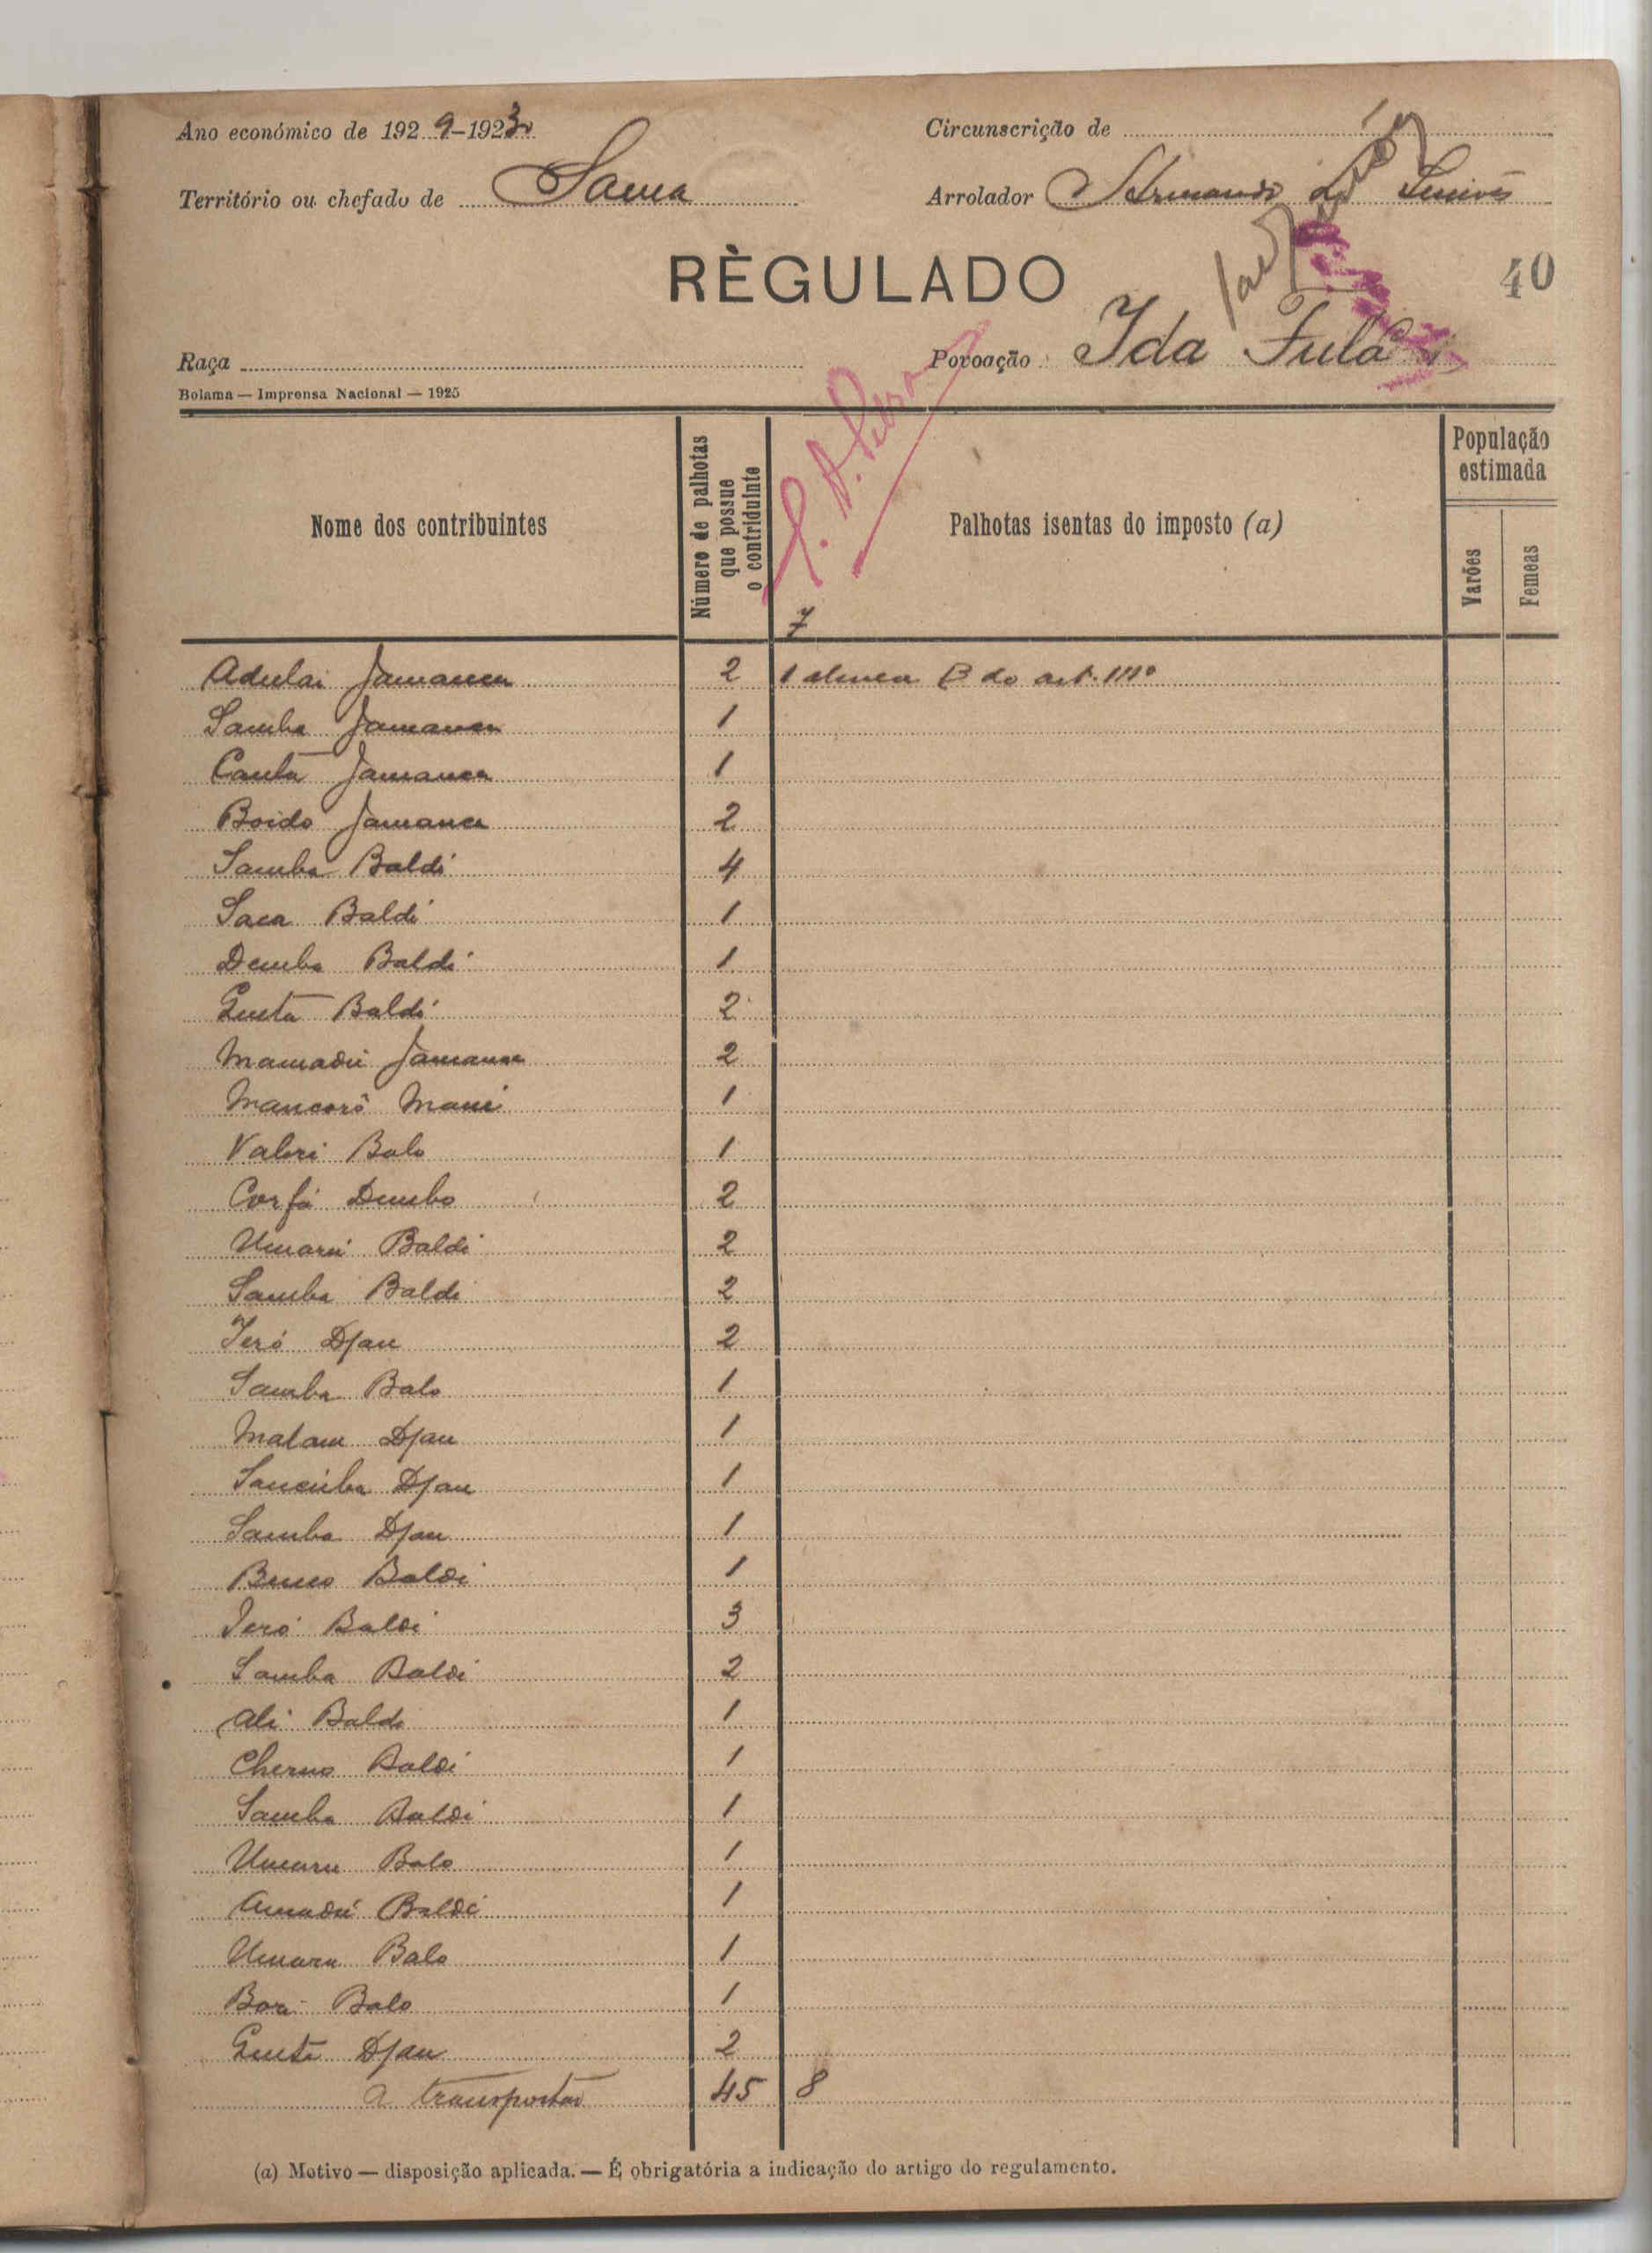 Ano económico de 1929-1930
Circunscrição de
Território ou chefado de Sama
Arrolador Armando
RÈGULADO
40
Raça
Povoação Ida Fulá
Bolama — Imprensa Nacional — 1925
Nome dos contribuintes
Número de palhotas que possue o contriduinte
Palhotas isentas do imposto (a)
População estimada
Varões
Femeas
7
Adulai Jamanca 2 1 alinea B do art. 111º
Samba Jamanca 1
Cantá Jamanca 1
Boido Jamanca 2
Samba Baldi 4
Saca Baldi 1
Demba Baldi 1
Guetá Baldi 2
Mamadú Jamanca 2
Mancorô Mané 1
Valeri Balo 1
Corfá Dembo 2
Umarú Baldi 2
Samba Baldi 2
Jeró Djau 2
Samba Balo 1
Malam Djau 1
Sancúba Djau 1
Samba Djau 1
Baldi 1
Jeró Baldi 3
Samba Baldi 2
Ali Baldi 1
Cherno Baldi 1
Samba Baldi 1
Umaru Balo 1
Amadú Baldé 1
Umaru Balo 1
Bori Balo 1
Guetá Djau 2
A transportar 45 8
(a) Motivo — disposição aplicada. — É obrigatória a indicação do artigo do regulamento.